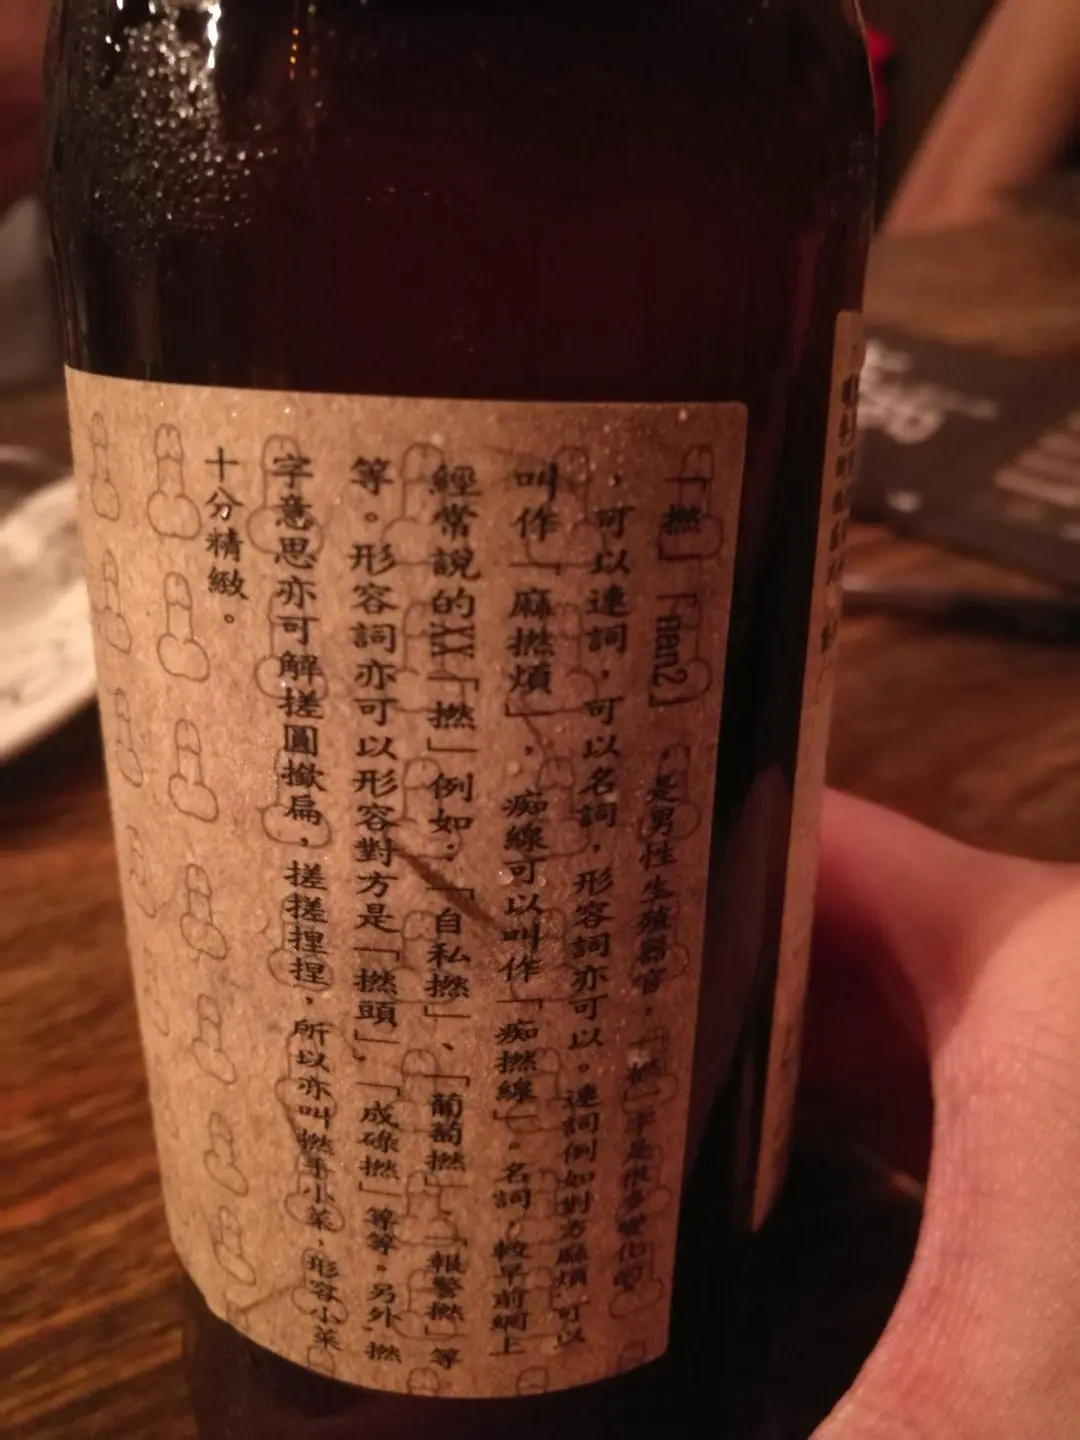 「撚」「nan2」，是男性生殖器官，「撚」字是很多變化的
，可以連詞，可以名詞，形容詞亦可以。連詞例如對方麻煩，可以
叫作「麻撚煩」，痴線可以叫作「痴撚線」。名詞，較早前網上
經常說的XX「撚」例如：「自私撚」、「葡萄撚」、「報警撚」等
等。形容詞亦可以形容對方是「撚頭」，「成碌撚」等等。另外，撚
字意思亦可解搓圓撳扁，搓搓捏捏，所以亦叫撚手小菜，形容小菜
十分精緻。